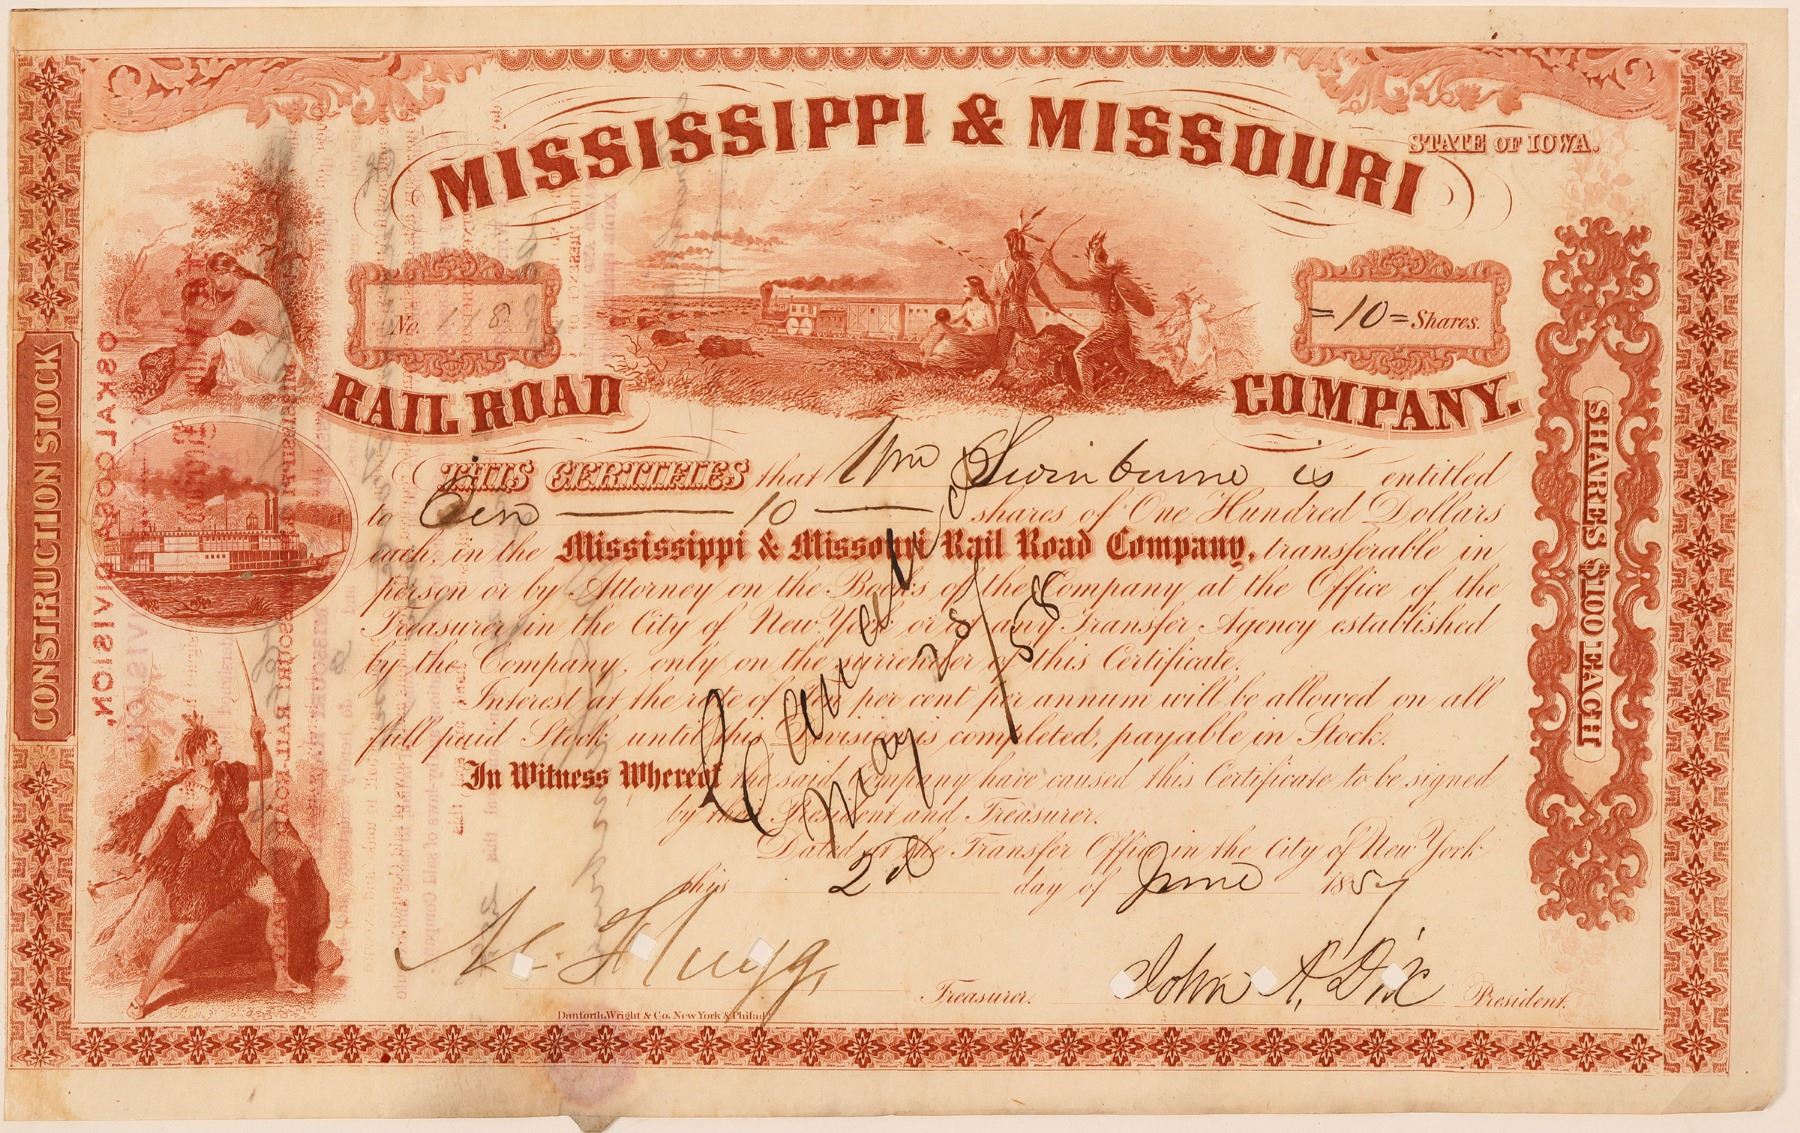 MISSISSIPPI & MISSOURI
STATE OF IOWA.
No. 118
=10= Shares.
RAIL ROAD COMPANY.
CONSTRUCTION STOCK
OSKALOOSA DIVISION,
SHARES $100 EACH
THIS CERTIFIES that Wm Swinburne is entitled
to Ten 10 shares of One Hundred Dollars
each, in the Mississippi & Missouri Rail Road Company, transferable in
person or by Attorney on the Books of the Company at the Office of the
Treasurer in the City of New York or at any Transfer Agency established
by the Company, only on the surrender of this Certificate.
Interest at the rate of per cent per annum will be allowed on all
full paid Stock until this Division is completed, payable in Stock.
In Witness Whereof the said Company have caused this Certificate to be signed
by the President and Treasurer.
Dated at the Transfer Office in the City of New York
this 2d day of June 1857
Cancelled
May 28/58
Treasurer.
John A. Dix President.
Danforth, Wright & Co. New York & Philad